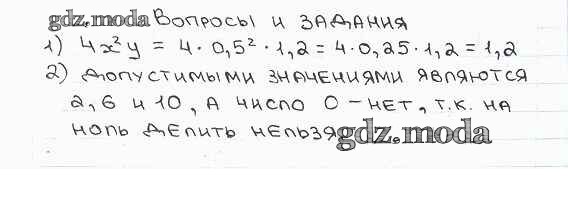 gdz.moda Вопросы и задания
1) 4x²y = 4 · 0,5² · 1,2 = 4 · 0,25 · 1,2 = 1,2
2) допустимыми значениями являются
2, 6 и 10, а число 0 – нет, т.к. на
ноль делить нельзя gdz.moda